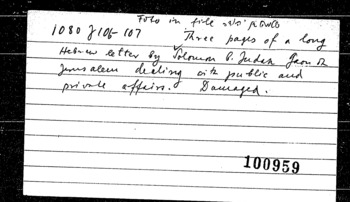 Foto in file
1080 J 106-107 Three pages of a long
Hebrew letter by Solomon b. Judah Gaon of
Jerusalem dealing with public and
private affairs. Damaged.
100959